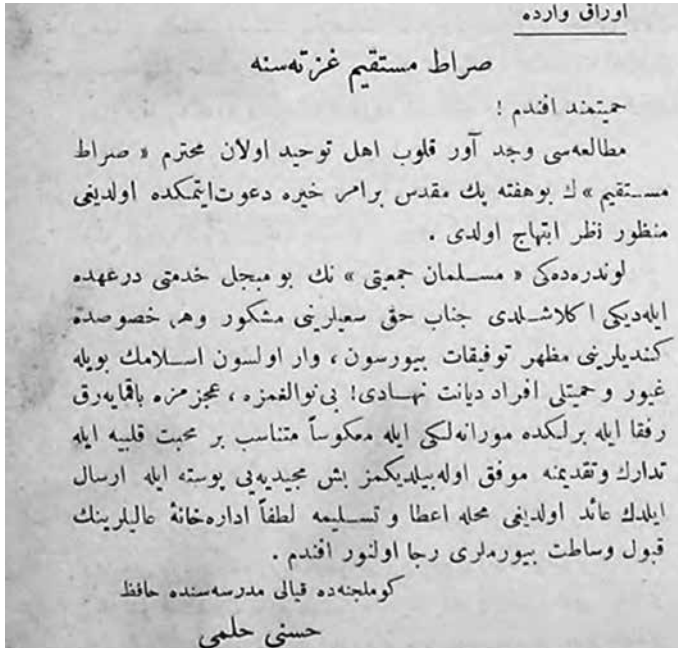 اوراق وارده
صراط مستقیم غزته‌سنه
حمیتمند افندم !
مطالعه‌سی وجد آور قلوب اهل توحید اولان محترم « صراط
مستقیم » ك بوهفته پك مقدس برامر خیره دعوت‌ایتمكده اولدیغی
منظور نظر ابتهاج اولدی .
لوندره‌ده‌كی « مسلمان جمعیتی » نك بو مبجل خدمتی درعهده
ایله‌دیكی اكلاشلدی جناب حق سعیلرینی مشكور وهر خصوصده
كندیلرینی مظهر توفیقات بیورسون ، وار اولسون اسلامك بویله
غیور و حمیتلی افراد دیانت نهادی! بی‌نوالغمزه ، عجزمزه باقمایه‌رق
رفقا ایله برلكده مورانه‌لكی ایله معكوساً متناسب بر محبت قلبیه ایله
تدارك وتقدیمنه موفق اوله‌بیلدیكمز بش مجیدیه‌یی پوسته ایله ارسال
ایلدك عائد اولدیغی محله اعطا و تسلیمه لطفاً اداره‌خانهٔ عالیلرینك
قبول وساطت بیورملری رجا اولنور افندم .
كوملجنه‌ده قیالی مدرسه‌سنده حافظ
حسنی حلمی